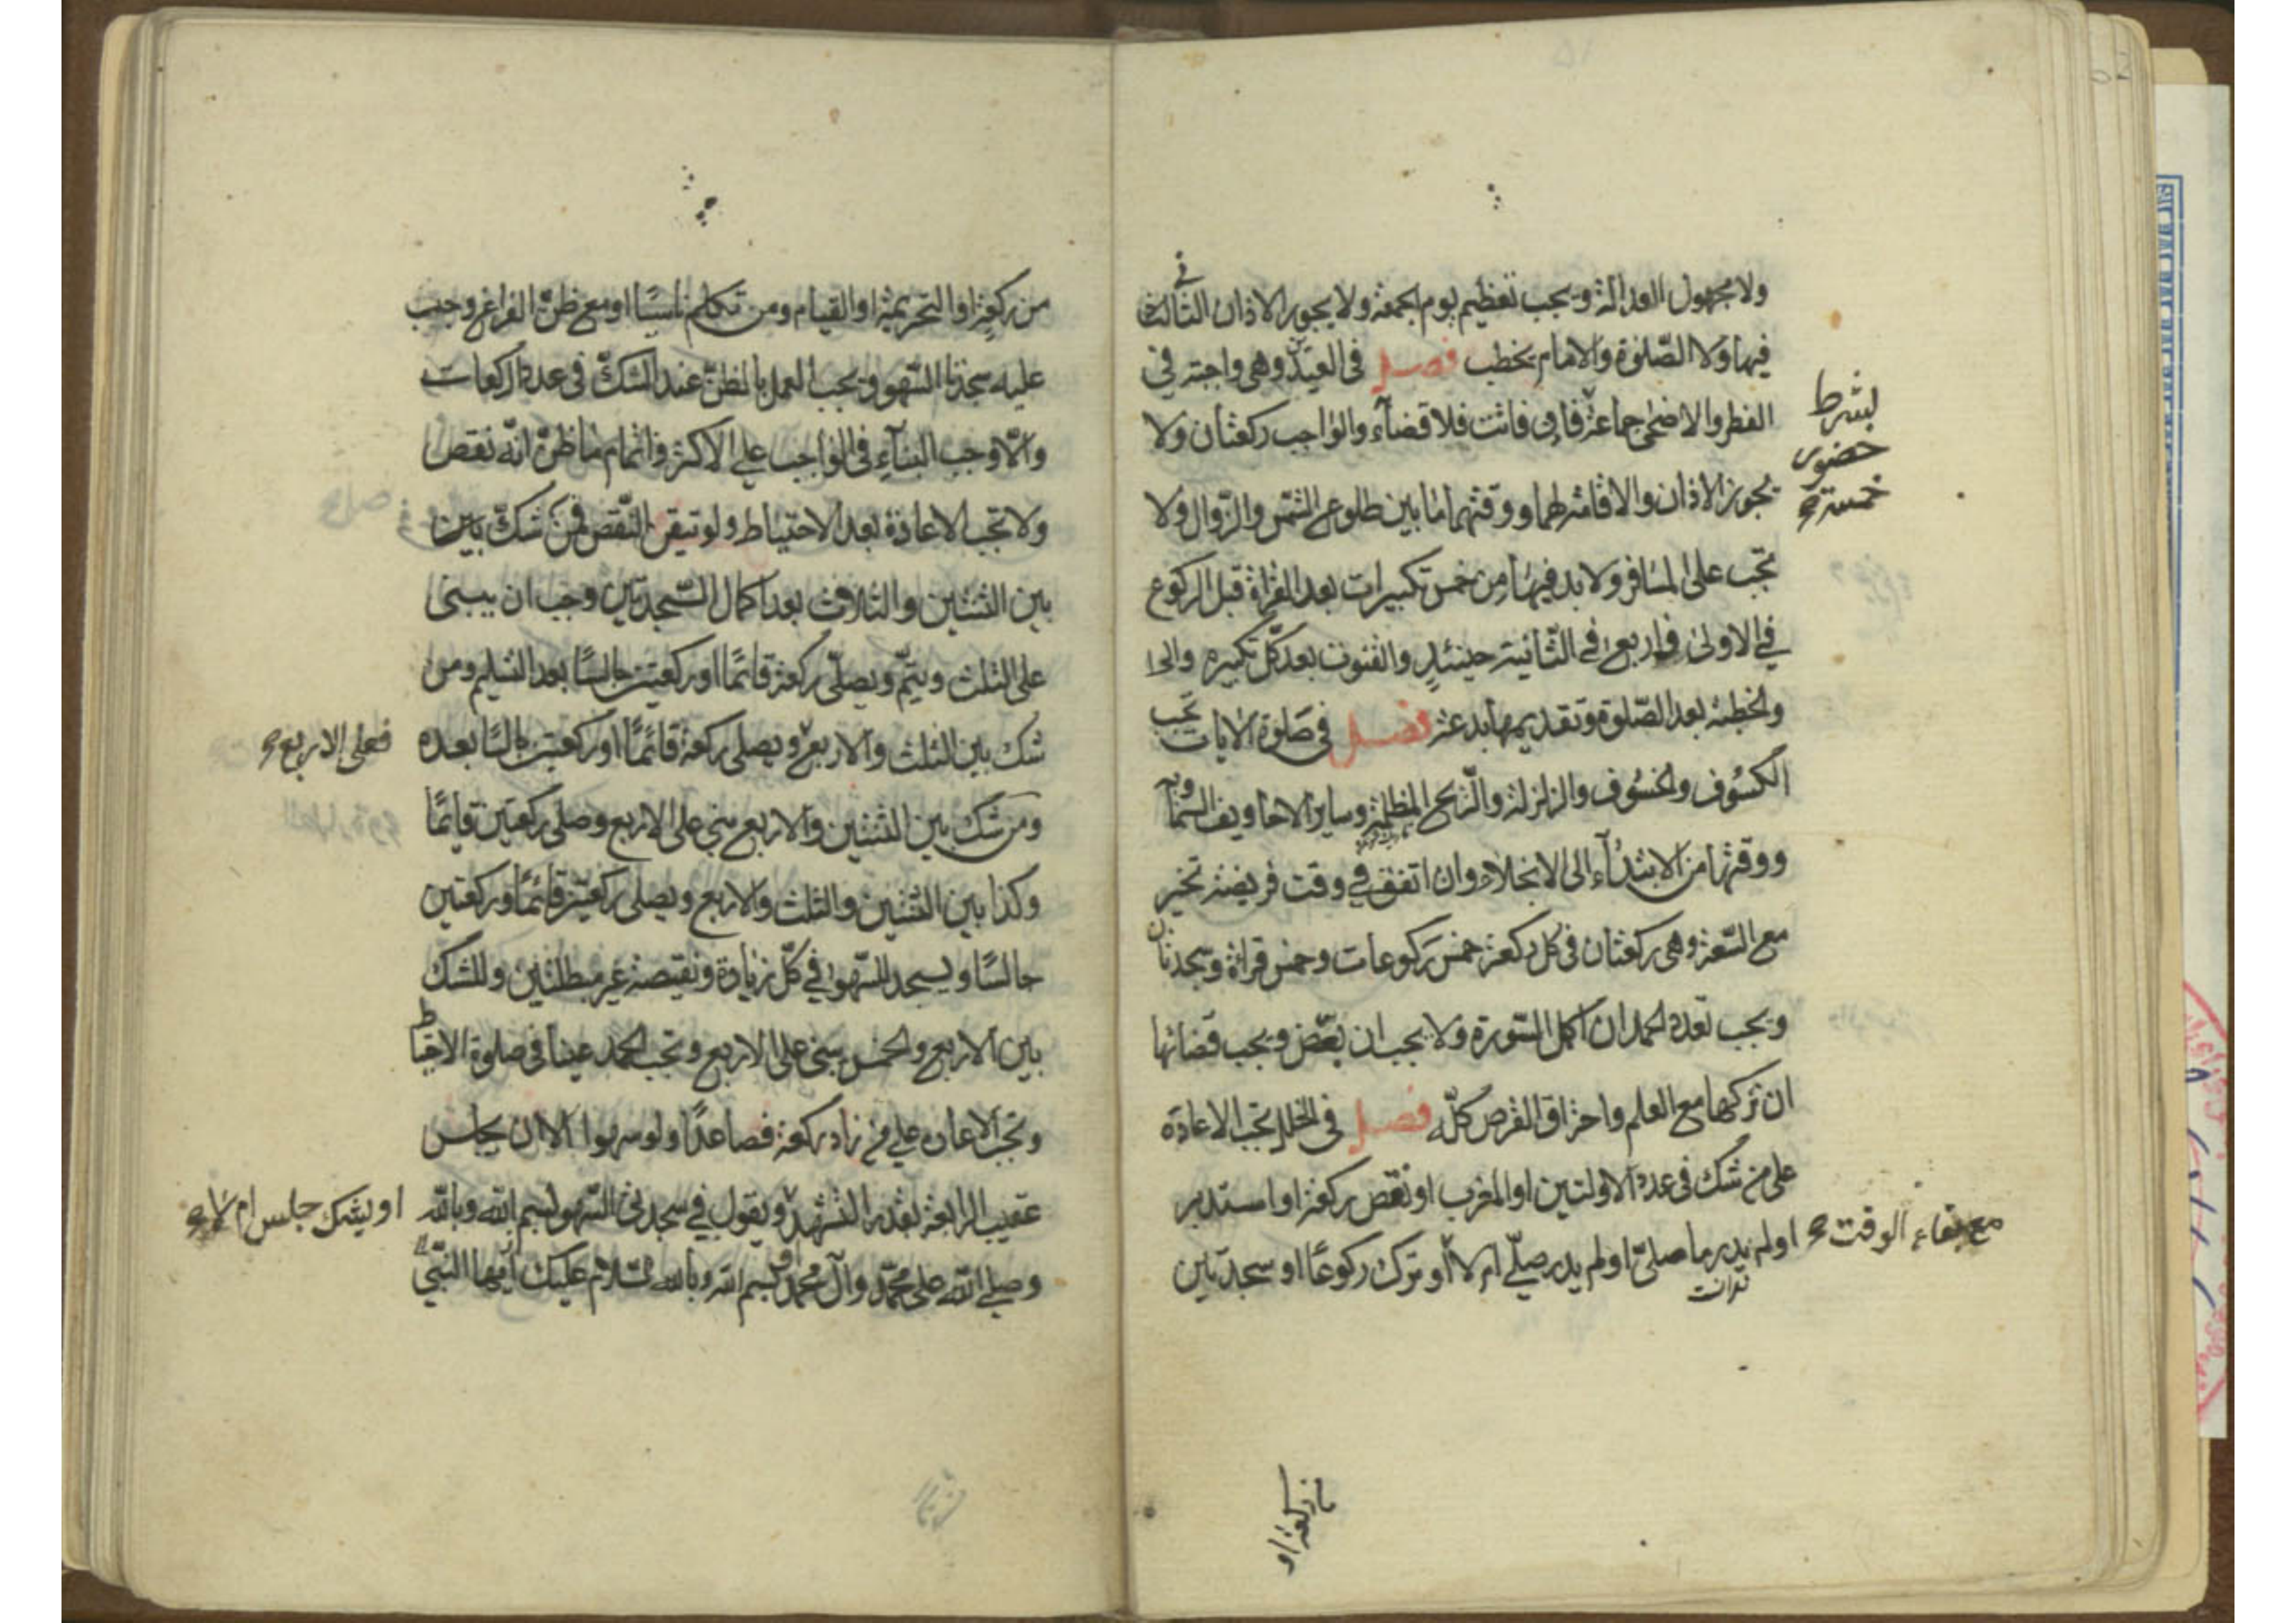 ولا مجهول العدالة ويجب تعظيم يوم الجمعة ولا يجوز الاذان الثالث
فى
فيها ولا الصّلوة والامام يخطب فصل فى العيدين وهى واجبة فى
الفطر والاضحى جماعة فان فاتت فلا قضآء والواجب ركعتان ولا
بشرط
حضور
خمسة
يجوز الاذان والاقامة لهما ووقتهما ما بين طلوع الشمس والزّوال ولا
تجب على المسافر ولا بد فيها من خمس تكبيرات بعد القراءة قبل الركوع
فى الاولى واربع فى الثّانية حينئذٍ والقنوت بعد كلّ تكبيره
والخطبة بعد الصّلوة وتقديمها بدعة فصل فى صَلوة الايات تجب
الكسُوف والخسُوف والزلزلة والرّيح المظلمة وساير الاخاويف السّماويه
ووقتها من الابتدآء الى الانجلاء وان اتفق فى وقت فريضة تخير
مع السّعة وهى ركعتان فى كل ركعة خمس ركوعات وخمس قراءة وسجدتان
ويجب تعدد الحمد ان اكمل السّورة ولا يجب ان بعّض ويجب قضائها
ان تركها مع العلم واحتراق القرص كلّه فصل فى الخلل تجب الاعادة
على من شك فى عدد الاولتين او المغرب او نقص ركعة او استدبر
مع بقاء الوقت
او لم يدر ما صلىّ او لم يدر صلّى ام لا او ترك ركوعًا او سجدتين
من ركعة او
من ركعة او التحريمة او القيام ومن تكلم ناسيًا او مع ظنّ الفراغ وجب
عليه سجدتا السّهو ويجب العمل بالظنّ عند الشكّ فى عدد الركعات
والّا وجب البنآء فى الواجب على الاكثر واتمام ما ظنّ انّه نقص
ولا تجب الاعادة بعد الاحتياط ولو تيقن النّقص فمن شكّ بين
بين الثنتين والثلاث بعد اكمال السّجدتين وجب ان يبنى
على الثلث ويتمّ ويصلّى ركعة قائمًا او ركعتين جالسًا بعد التسليم ومن
شك بين الثلث والاربع ويصلى ركعة قائمًا او ركعتين جالسًا بعده
فعلى الاربع
ومن شك بين الثنتين والاربع بنى على الاربع وصلى ركعتين قايمًا
وكذا بين الثنتين والثلث والاربع ويصلى ركعتين قائمًا وركعتين
جالسًا ويسجد للسّهو فى كلّ زيادة ونقيصة غير مبطلتين وللشك
بين الاربع والخمس يبنى على الاربع وتجب الحمد عينا فى صلوة الاحتياط
وتجب الاعاده على من زاد ركعة فصاعدًا ولو سهوا الا ان يجلس
عقيب الرابعة بقدر التشهد ويقول فى سجدتى السّهو بسم الله وبالله
او يشك جلس ام لا
وصلى الله على محمّد وآل محمد او بسم الله وبالله السّلام عليك ايّها النّبىّ